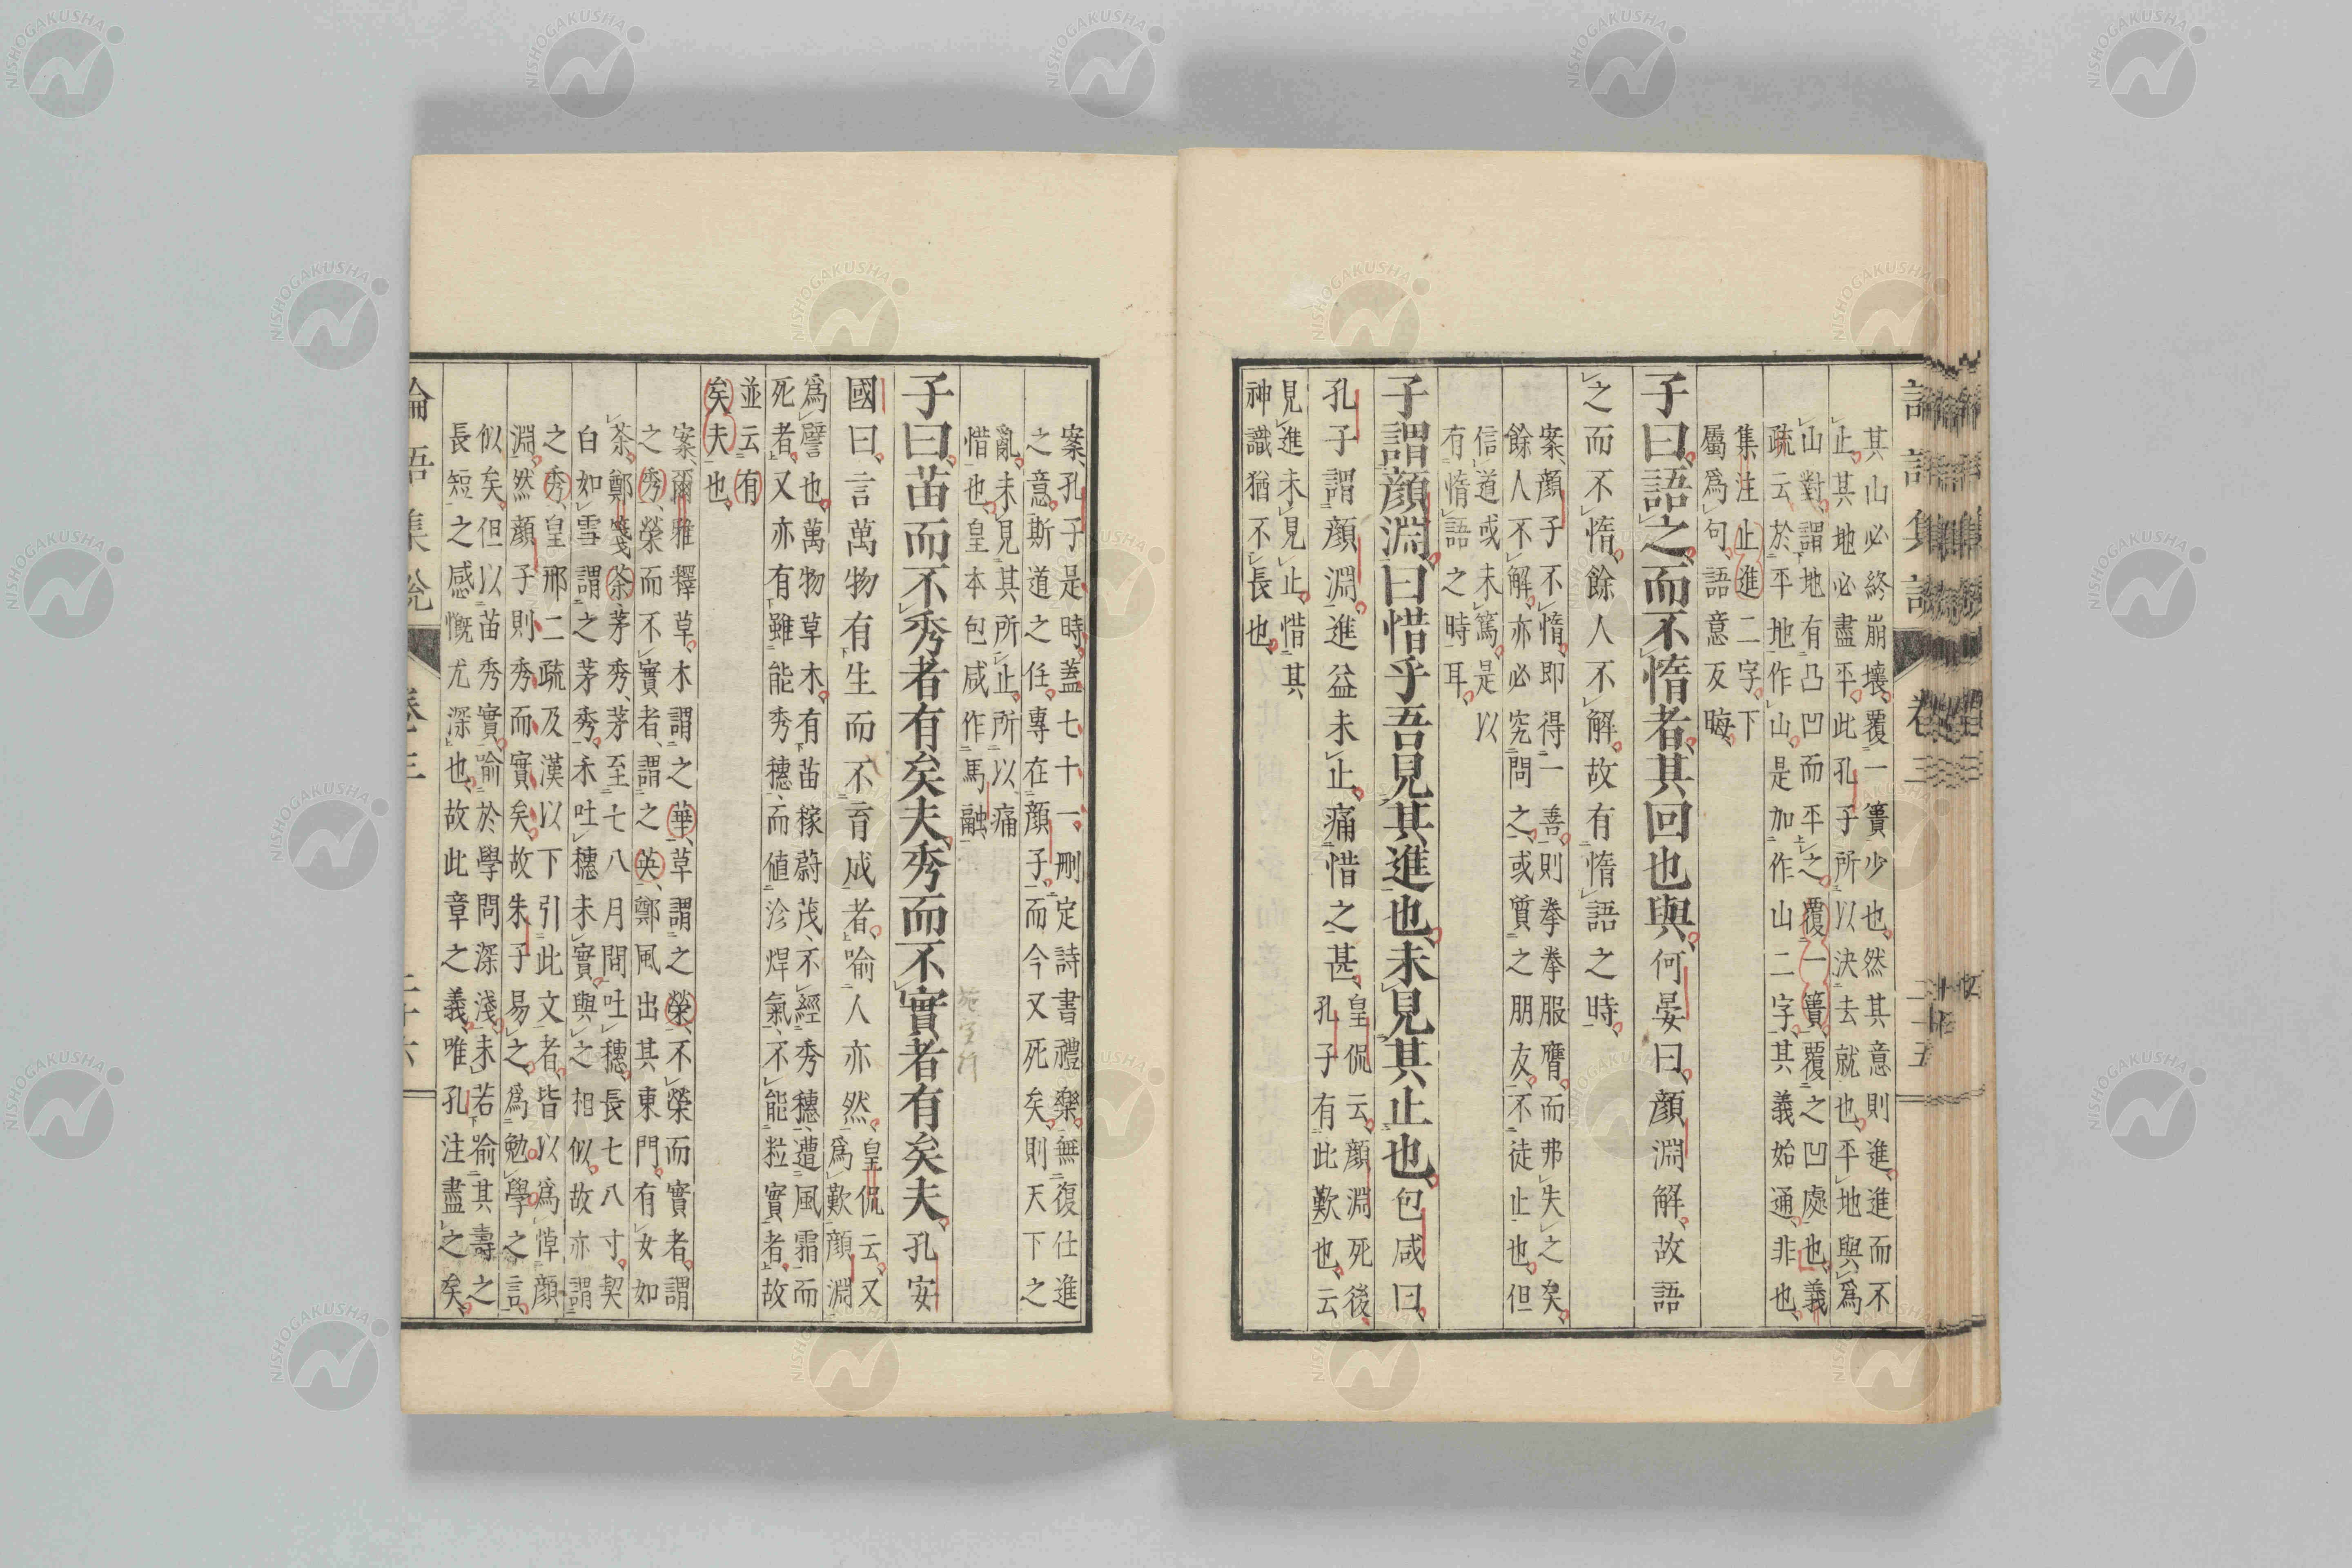 其山必終崩壞、覆一簣少也、然其意則進、進而不
止、其地必盡平、此孔子所以決去就也、平地與爲
山對、謂地有凸凹而平之、覆一簣、覆之凹處也、義
疏云、於平地作山、是加作山二字、其義始通、非也、
集注止進二字、下
屬爲句、語意反晦、
子曰、語之而不惰者、其回也與、何晏曰、顏淵解、故語
之而不惰、餘人不解、故有惰語之時、
案、顏子不惰、即得一善、則拳拳服膺、而弗失之矣、
餘人不解、亦必究問之、或質之朋友、不徒止也、但
信道或未篤、是以
有惰語之時耳、
子謂顏淵、曰惜乎吾見其進也、未見其止也、包咸曰、
孔子謂顏淵、進益未止、痛惜之甚、
皇侃云、顏淵死後、
孔子有此歎也、云
見進未見止、惜其
神識猶不長也、
案、孔子是時、蓋七十一、刪定詩書禮樂、無復仕進
之意、斯道之任、專在顏子、而今又死矣、則天下之
亂、未見其所止、所以痛
惜也、皇本包咸作馬融、
子曰、苗而不秀者有矣夫、秀而不實者有矣夫、孔安
國曰、言萬物有生而不育成者、喻人亦然、
皇侃云、又
爲歎顏淵
爲譬也、萬物草木、有苗稼蔚茂、不經秀穗、遭風霜而
死者、又亦有雖能秀穗、而値沴焊氣、不能粒實者、故
並云有
矣夫也、
案、爾雅釋草、木謂之華、草謂之榮、不榮而實者、謂
之秀、榮而不實者、謂之英、鄭風出其東門、有女如
荼、鄭箋荼、茅秀、茅至七八月間吐穗、長七八寸、契
白如雪、謂之茅秀、禾吐穗未實、與之相似、故亦謂
之秀、皇邢二疏及漢以下引此文者、皆以爲悼顏
淵、然顏子則秀而實矣、故朱子易之、爲勉學之言、
似矣、但以苗秀實、喻於學問深淺、未若喻其壽之
長短之感慨尤深也、故此章之義、唯孔注盡之矣、